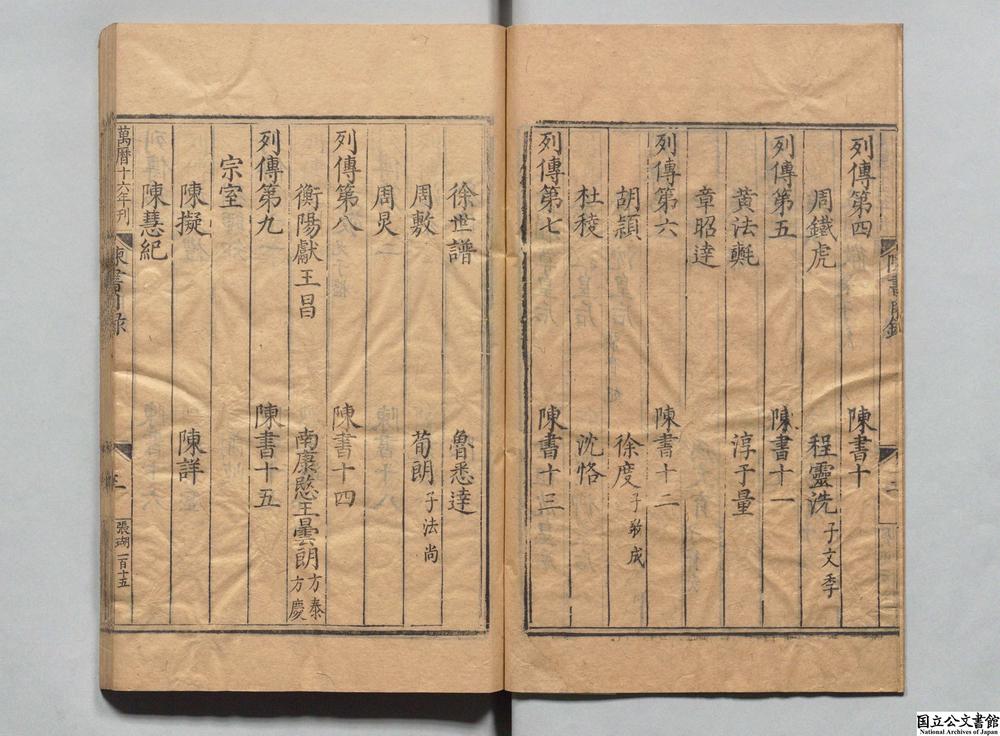 列傳第四 陳書十
周鐵虎 程靈洗 子文季
列傳第五 陳書十一
黄法𣰰 淳于量
章昭達
列傳第六 陳書十二
胡頴 徐度 子敬成
杜稜 沈恪
列傳第七 陳書十三
徐世譜 魯悉達
周敷 荀朗 子法尚
周炅
列傳第八 陳書十四
衡陽獻王昌 南康愍王曇朗 方泰 方慶
列傳第九 陳書十五
宗室
陳擬 陳詳
陳慧紀
萬曆十六年刊 陳書目録 三 張瑚 一百十五
国立公文書館
National Archives of Japan